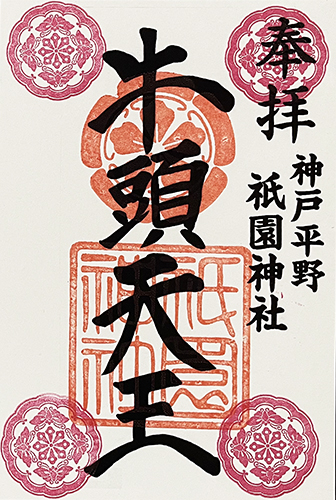 奉拝
神戸平野
祇園神社
牛頭天王
祇園
神社